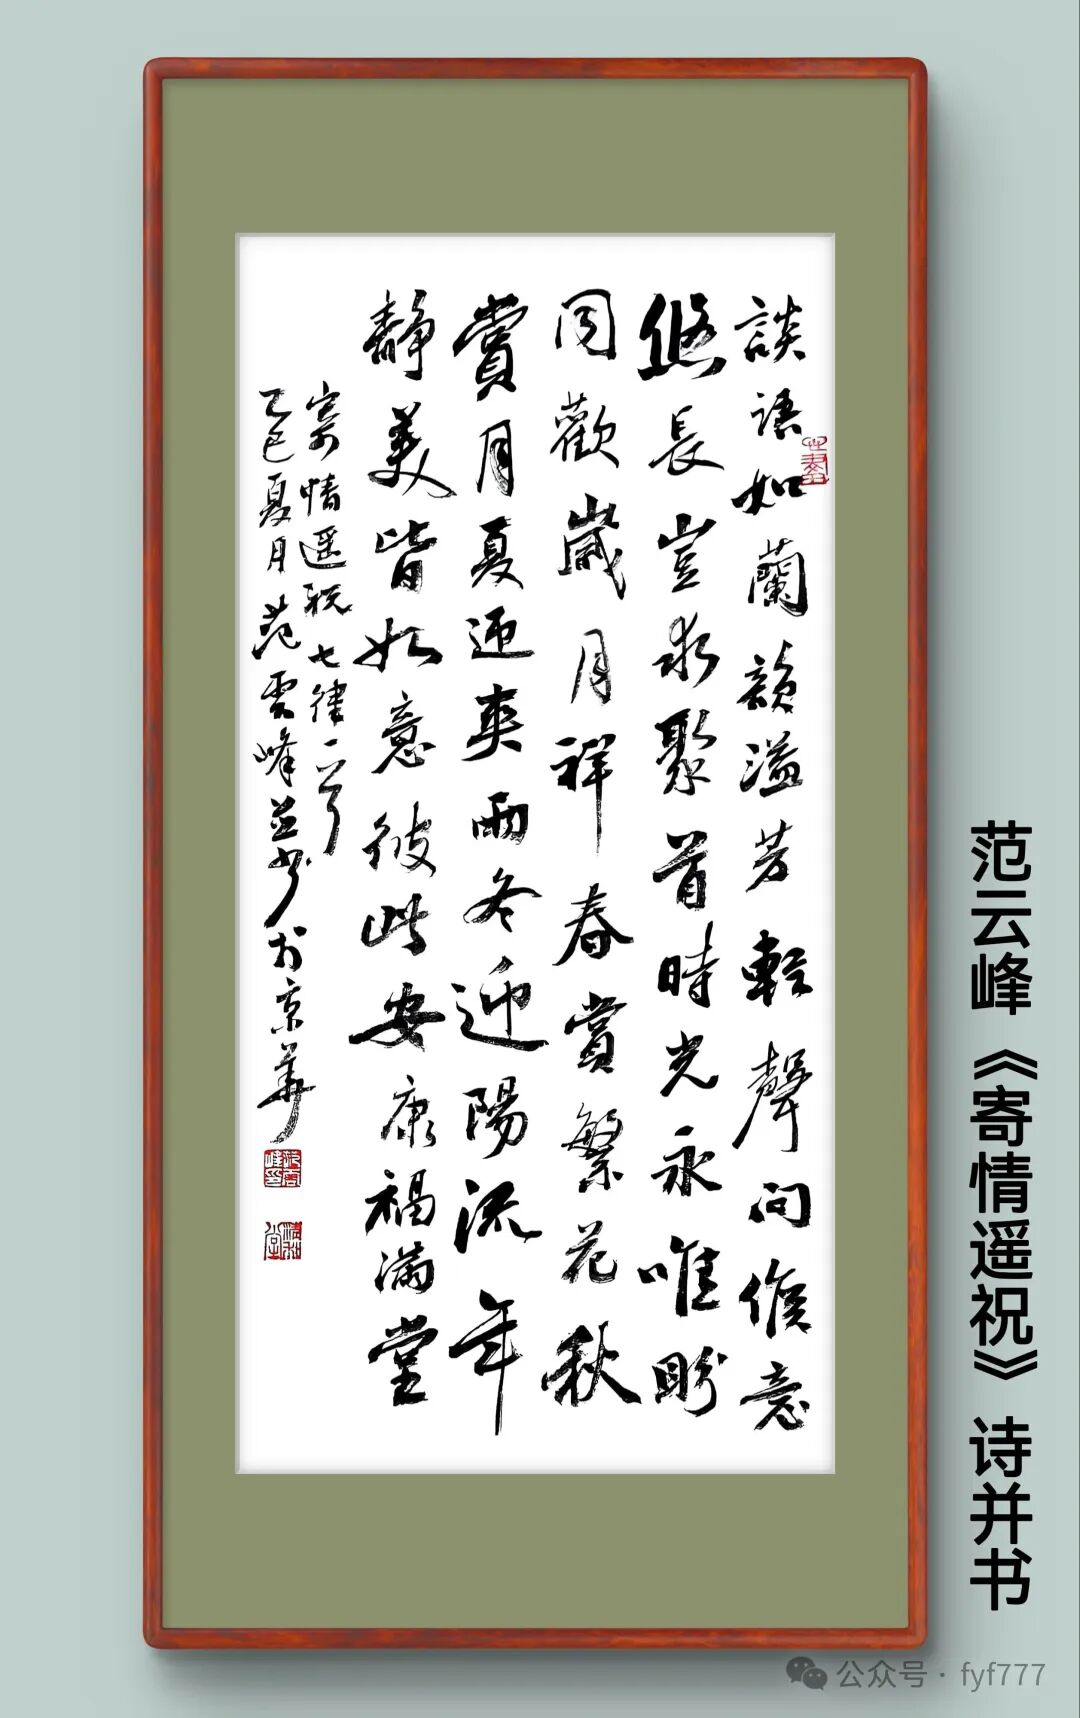 談語如蘭韻溢芳輕聲问候意
悠長豈求聚首時光永唯盼
同歡歲月祥春賞繁花秋
賞月夏迎爽雨冬迎陽流年
靜美皆如意彼此安康福滿堂
寄情遥祝七律一首
乙巳夏月范雲峰並书於京華
范云峰《寄情遥祝》诗并书
公众号·fyf777